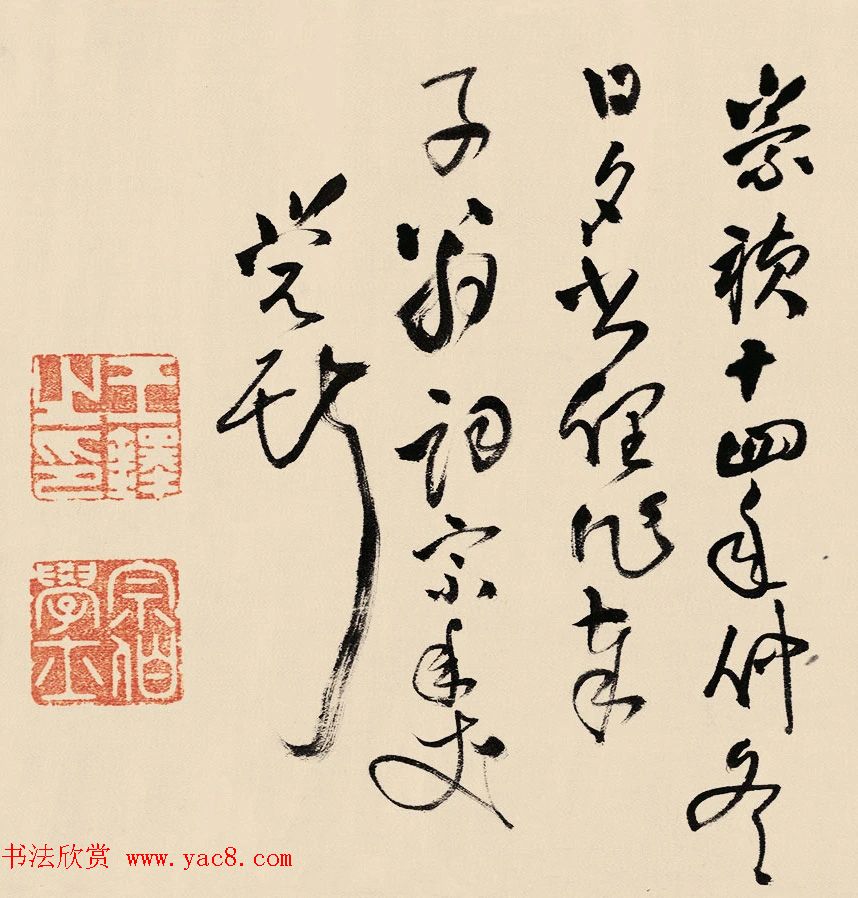 崇禎十四年仲冬
日夕書俚作奉
子翁詞宗年丈
覺斯
王鐸之印
宗伯學士
书法欣赏 www.yac8.com